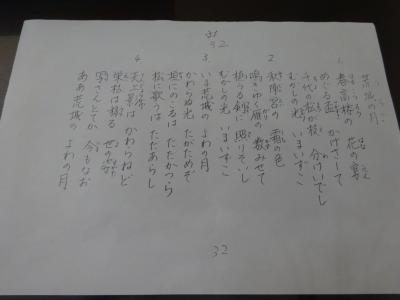 荒城の月
1
春高楼の 花の宴
めぐる盃 かげさして
千代の松が枝 分けいでし
むかしの光 いまいずこ
2
秋陣営の 霜の色
鳴きゆく雁の 数みせて
植うる剣に 照りそいし
むかしの光 いまいずこ
3
いま荒城の よわの月
かわらぬ光 たがためぞ
垣にのこるは ただかつら
松に歌うは ただあらし
4
天上影は かわらねど
栄枯は移る 世の姿
写さんとてか 今もなお
ああ荒城の よわの月
32
32